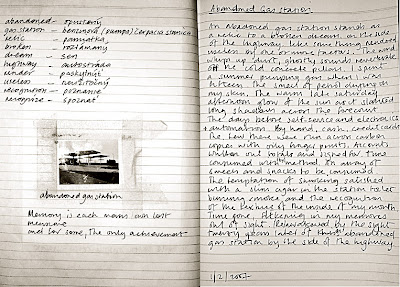 abandoned - opustený
gas station - benzínová (pumpa) čerpacia stanica
relic - pamiatka
broken - rozlámaný
dream - sen
highway - autostráda
render - poskytnúť
useless - neužitočný
recognition - poznanie
recognize - spoznať
abandoned gas station
Memory is each man's own last
measure
and for some, the only achievement
Abandoned Gas Station
An abandoned gas station stands as
a relic to a broken dream, on the side
of the highway like something rendered
useless by one more factor. The wind
whips up dust, ghostly sounds reverberate
off the cold concrete pillars. I spent
a summer pumping gas when I was
fifteen. The smell of petrol lingering on
my skin. The warm late saturday
afternoon glow of the sun as it slanted
long shadows across the forecourt
The days before self-service and electronics
+ automation. By hand, cash, credit cards
The few there were run across carbon
copies with only finger prints. Accounts
written out totals and signed for. Time
consumed with method. An array of
sweets and snacks to be consumed.
The temptation of smoking satisfied
with a slim cigar in the station toilet
burning smoke and the recognition
of the texture of the inside of my mouth
Time gone, flickering in my memories
out of sight. Rediscovered by the sight
twenty years later of this abandoned
gas station by the side of the highway.
1/2/2007